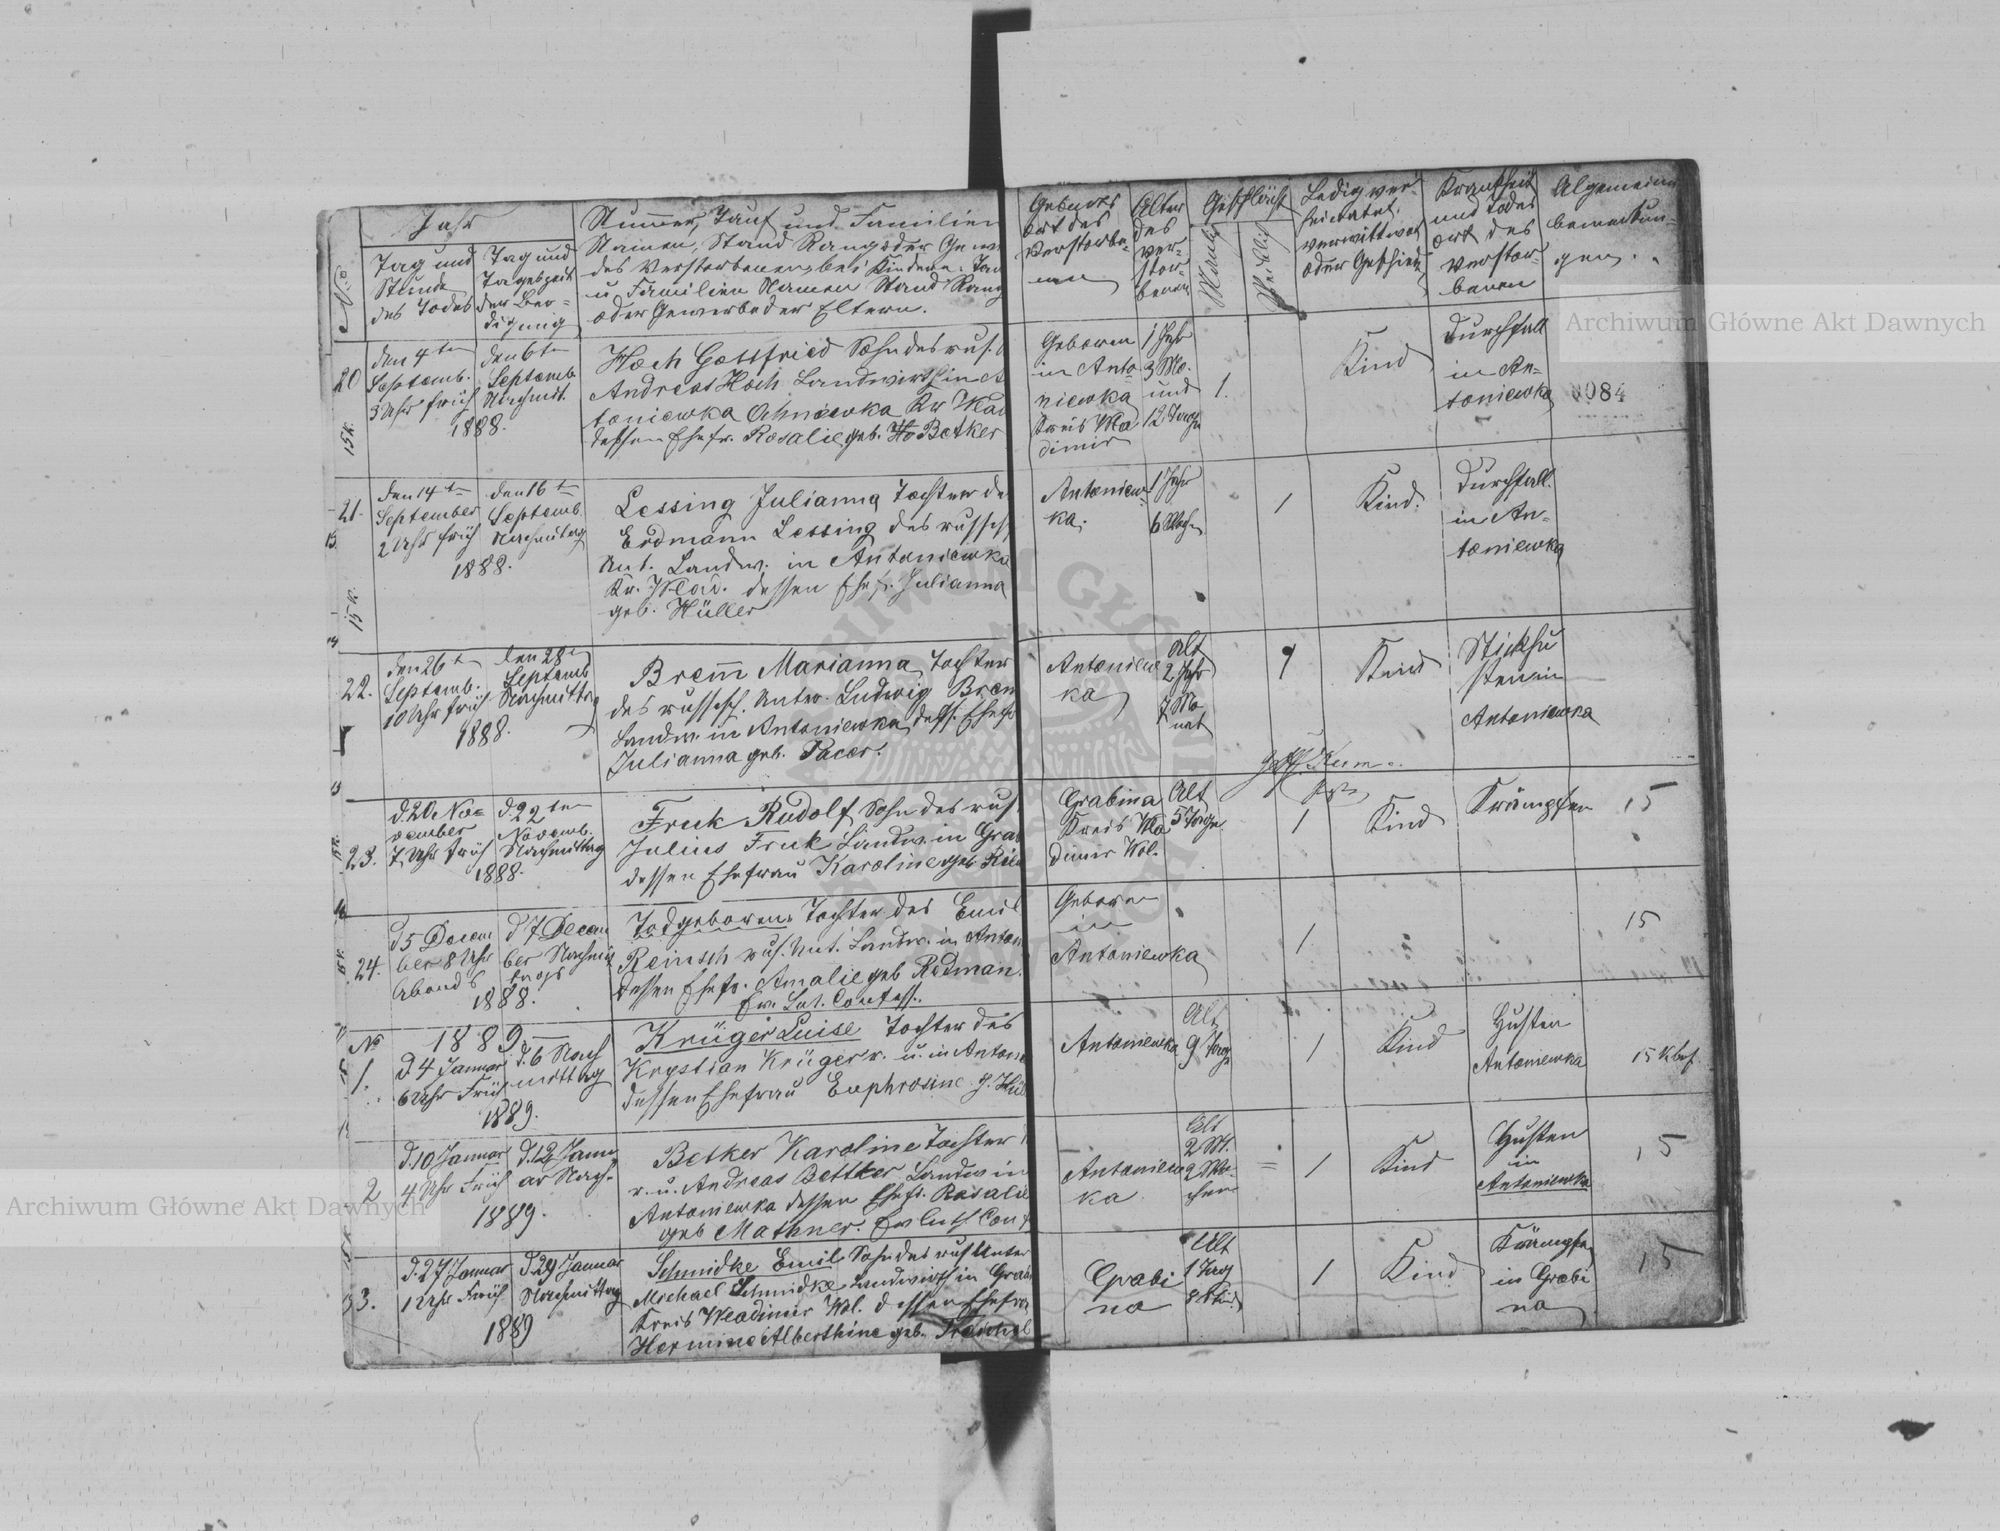 Jahr
No
Tag und
Stunde
des Todes
Tag und
Tageszeit
der Beer=
digung
Nummer, Tauf und Familien
Namen, Stand Rang oder Gewe
des Verstorbenen, bei Kindern. Tau
u. Familien Namen Stand Rang
oder Gewerbe der Eltern.
Geburts
ort des
Verstorbe-
nen
Alter
des
Ver-
stor-
benen
Geschlächt
Mänl
Weibl
Ledig ver-
heiratet.
verwittwet
oder Geschied
Krankheit
und Todes
ort des
Verstor-
benen
Algemeine
bemerkun-
gen.
20
15 K.
den 4ten
Septemb.
3 Uhr früh
den 6ten
Septemb
Nachmit.
1888.
Hoch Gottfried Sohn des rus.
Andreas Hoch Landwirth in A
toniewka Kr Wla
dessen Ehefr. Rosalie geb. Betker
Geboren
in Anto
niewka
Kreis Wla
dimir
1 Jahr
3 Mo.
und
12 Tage
1.
Kind
Durchfall
in An-
toniewka
0084
21.
15 K.
den 14ten
September
2 Uhr früh
den 16ten
Septemb.
Nachmitag
1888.
Lessing Julianna Tochter de
Erdmann Lessing des russisch
Unt. Landw. in Antoniewka
Kr. Wlad. dessen Ehefr. Julianna
geb. Müller
Antoniew-
ka.
1 Jahr
6 Woch
1
Kind.
Durchfall.
in An-
toniewka
22.
den 26t
Septemb.
10 Uhr früh
den 28t
Septemb
Nachmittag
1888.
Brem̄ Marianna Tochter
des russisch. Unter. Ludwig Brem
Landw. in Antoniewka, dess. Ehefr
Julianna geb. Pacer.
Antoniew
ka
Alt
2 Jahr
7 Mo
nat
1
Kind
Stickhu
sten in
Antoniewka
23.
d. 20 No=
vember
7 Uhr früh
d. 22ten
Novemb.
Nachmittag
1888.
Fruk Rudolf Sohn des rus
Julius Fruk Landw. in Grab
dessen Ehefrau Karoline geb
Grabina
Kreis Wla
dimir Wol.
Alt
5 Tage
1
Kind
Krämpfen
15
24.
d 5 Decem
ber 8 Uhr
Abends
d 7 Decem
ber Nachmit
tags
1888.
Todgeboren. Tochter des Emil
Reinsch rus. Unt. Landw. in Anton
dessen Ehefr. Amalie geb Redman.
Ev. Lut. Confess.
Geboren
in
Antoniewka
1
15
No
1889.
1.
d 4 Januar
6 Uhr Früh
d. 6 Nach
mittag
1889.
Krüger Luise Tochter des
Krystian Krüger r. u. in Antoni
dessen Ehefrau Euphrosine g.
Antoniewka
Alt
9 Tage
1
Kind
Husten
Antoniewka
15 Kbf.
2
d. 10 Januar
4 Uhr Früh
d. 12 Janu
ar Nach-
1889.
Betker Karoline Tochter
r. u. Andreas Bettker Landw in
Antoniewka dessen Ehefr. Rosalie
geb Mathner. Ev Luth Conf
Antoniew
ka
Alt
2 M.
2 Wo-
chen
=
1
Kind
Husten
in
Antoniewka
15
3.
d. 27 Januar
1 Uhr Früh
d. 29 Januar
Nachmittag
1889
Schmidke Emil Sohn des rus Unter
Michael Schmidke Landwirth in Grabi
Kreis Wladimir Wol. dessen Ehefra
Hermine Alberthine geb. Treichel
Grabi
na
Alt
1 Tag
8 Stund
1
Kind
Krämpfe
in Grabi
na
15
Archiwum Główne Akt Dawnych
Archiwum Główne Akt Dawnych